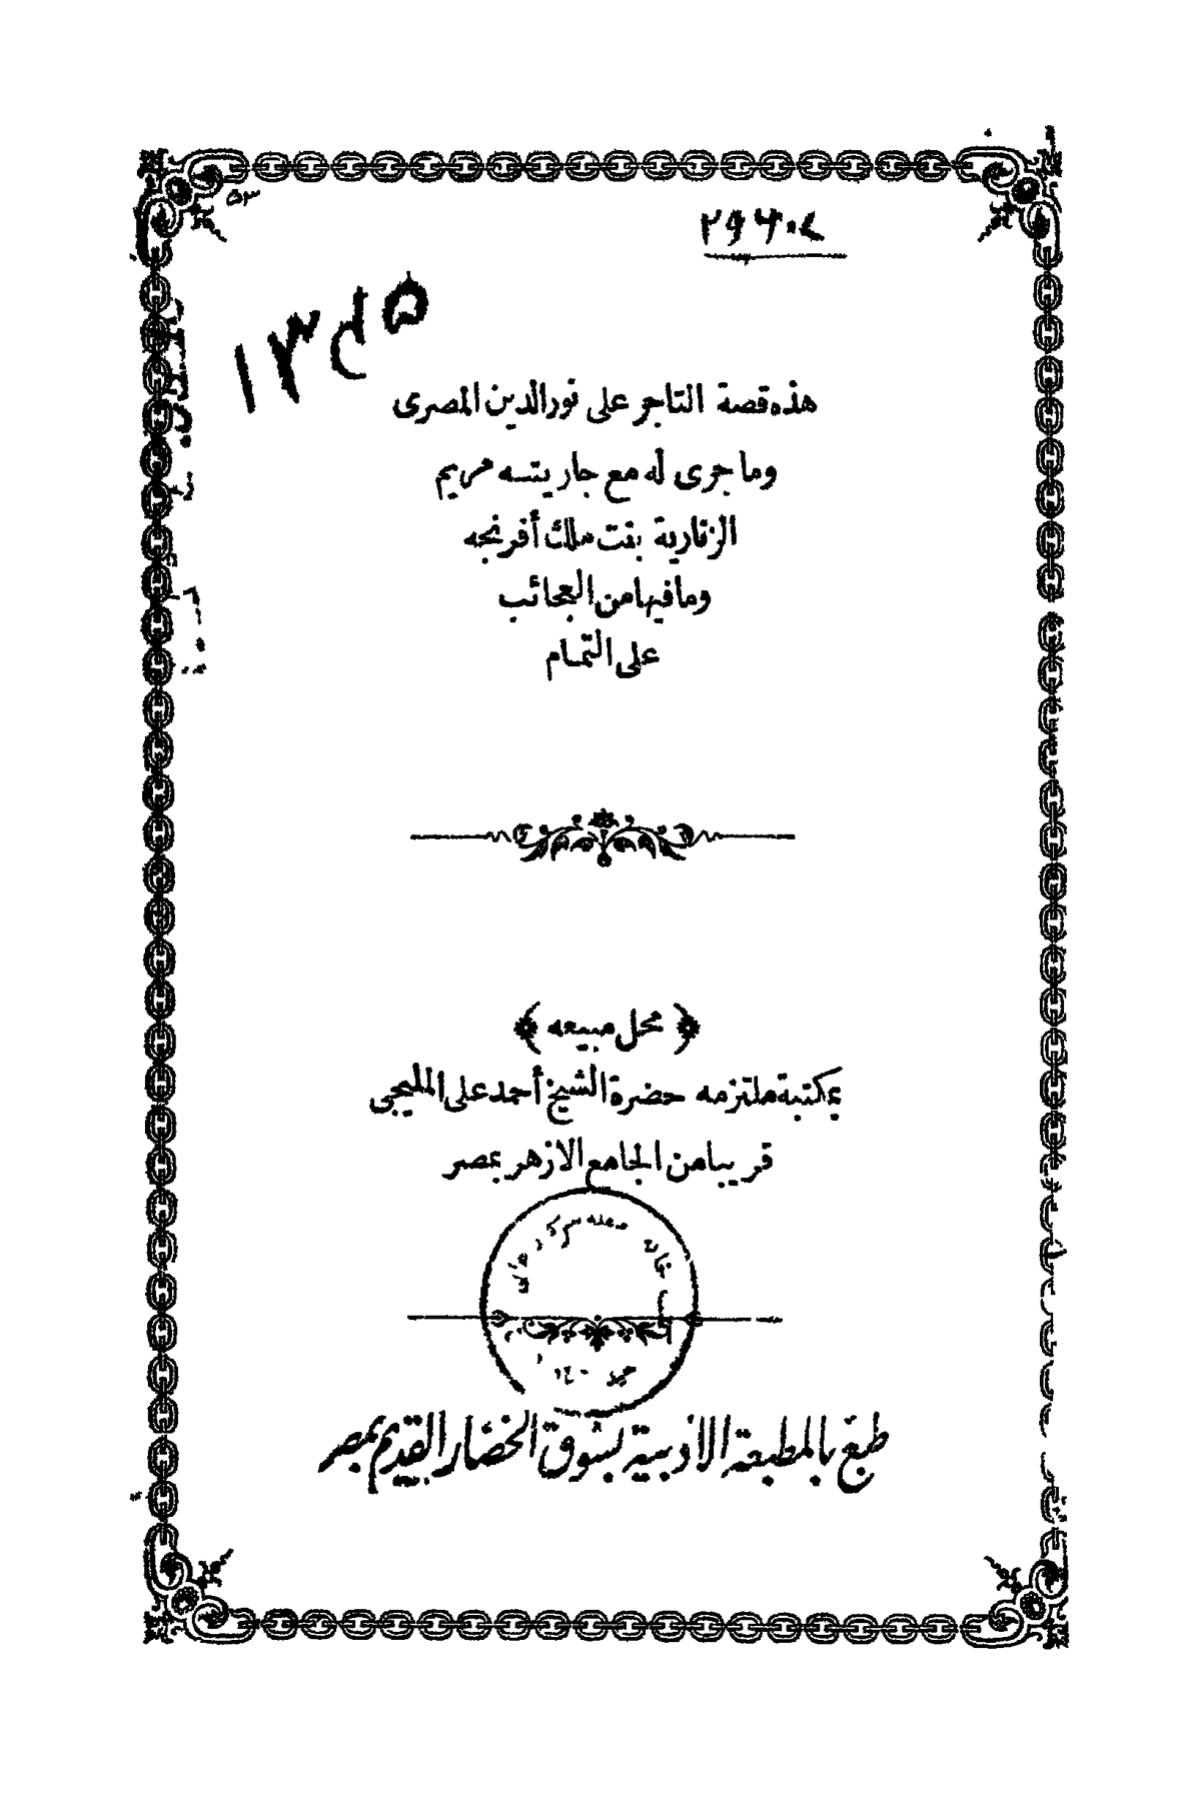 ٢٩٦٠٨
١٣
هذه قصة التاجر على نور الدين المصرى
وما جرى له مع جاريتسه مريم
الزنارية بنت ملك أفرنجه
وما فيها من العجائب
على التمام
﴿ محل مبيعه ﴾
بمكتبة ملتزمه حضرة الشيخ أحمد على المليجى
قريبا من الجامع الازهر بمصر
طبع بالمطبعة الأدبية بسوق الخضار القديم بمصر